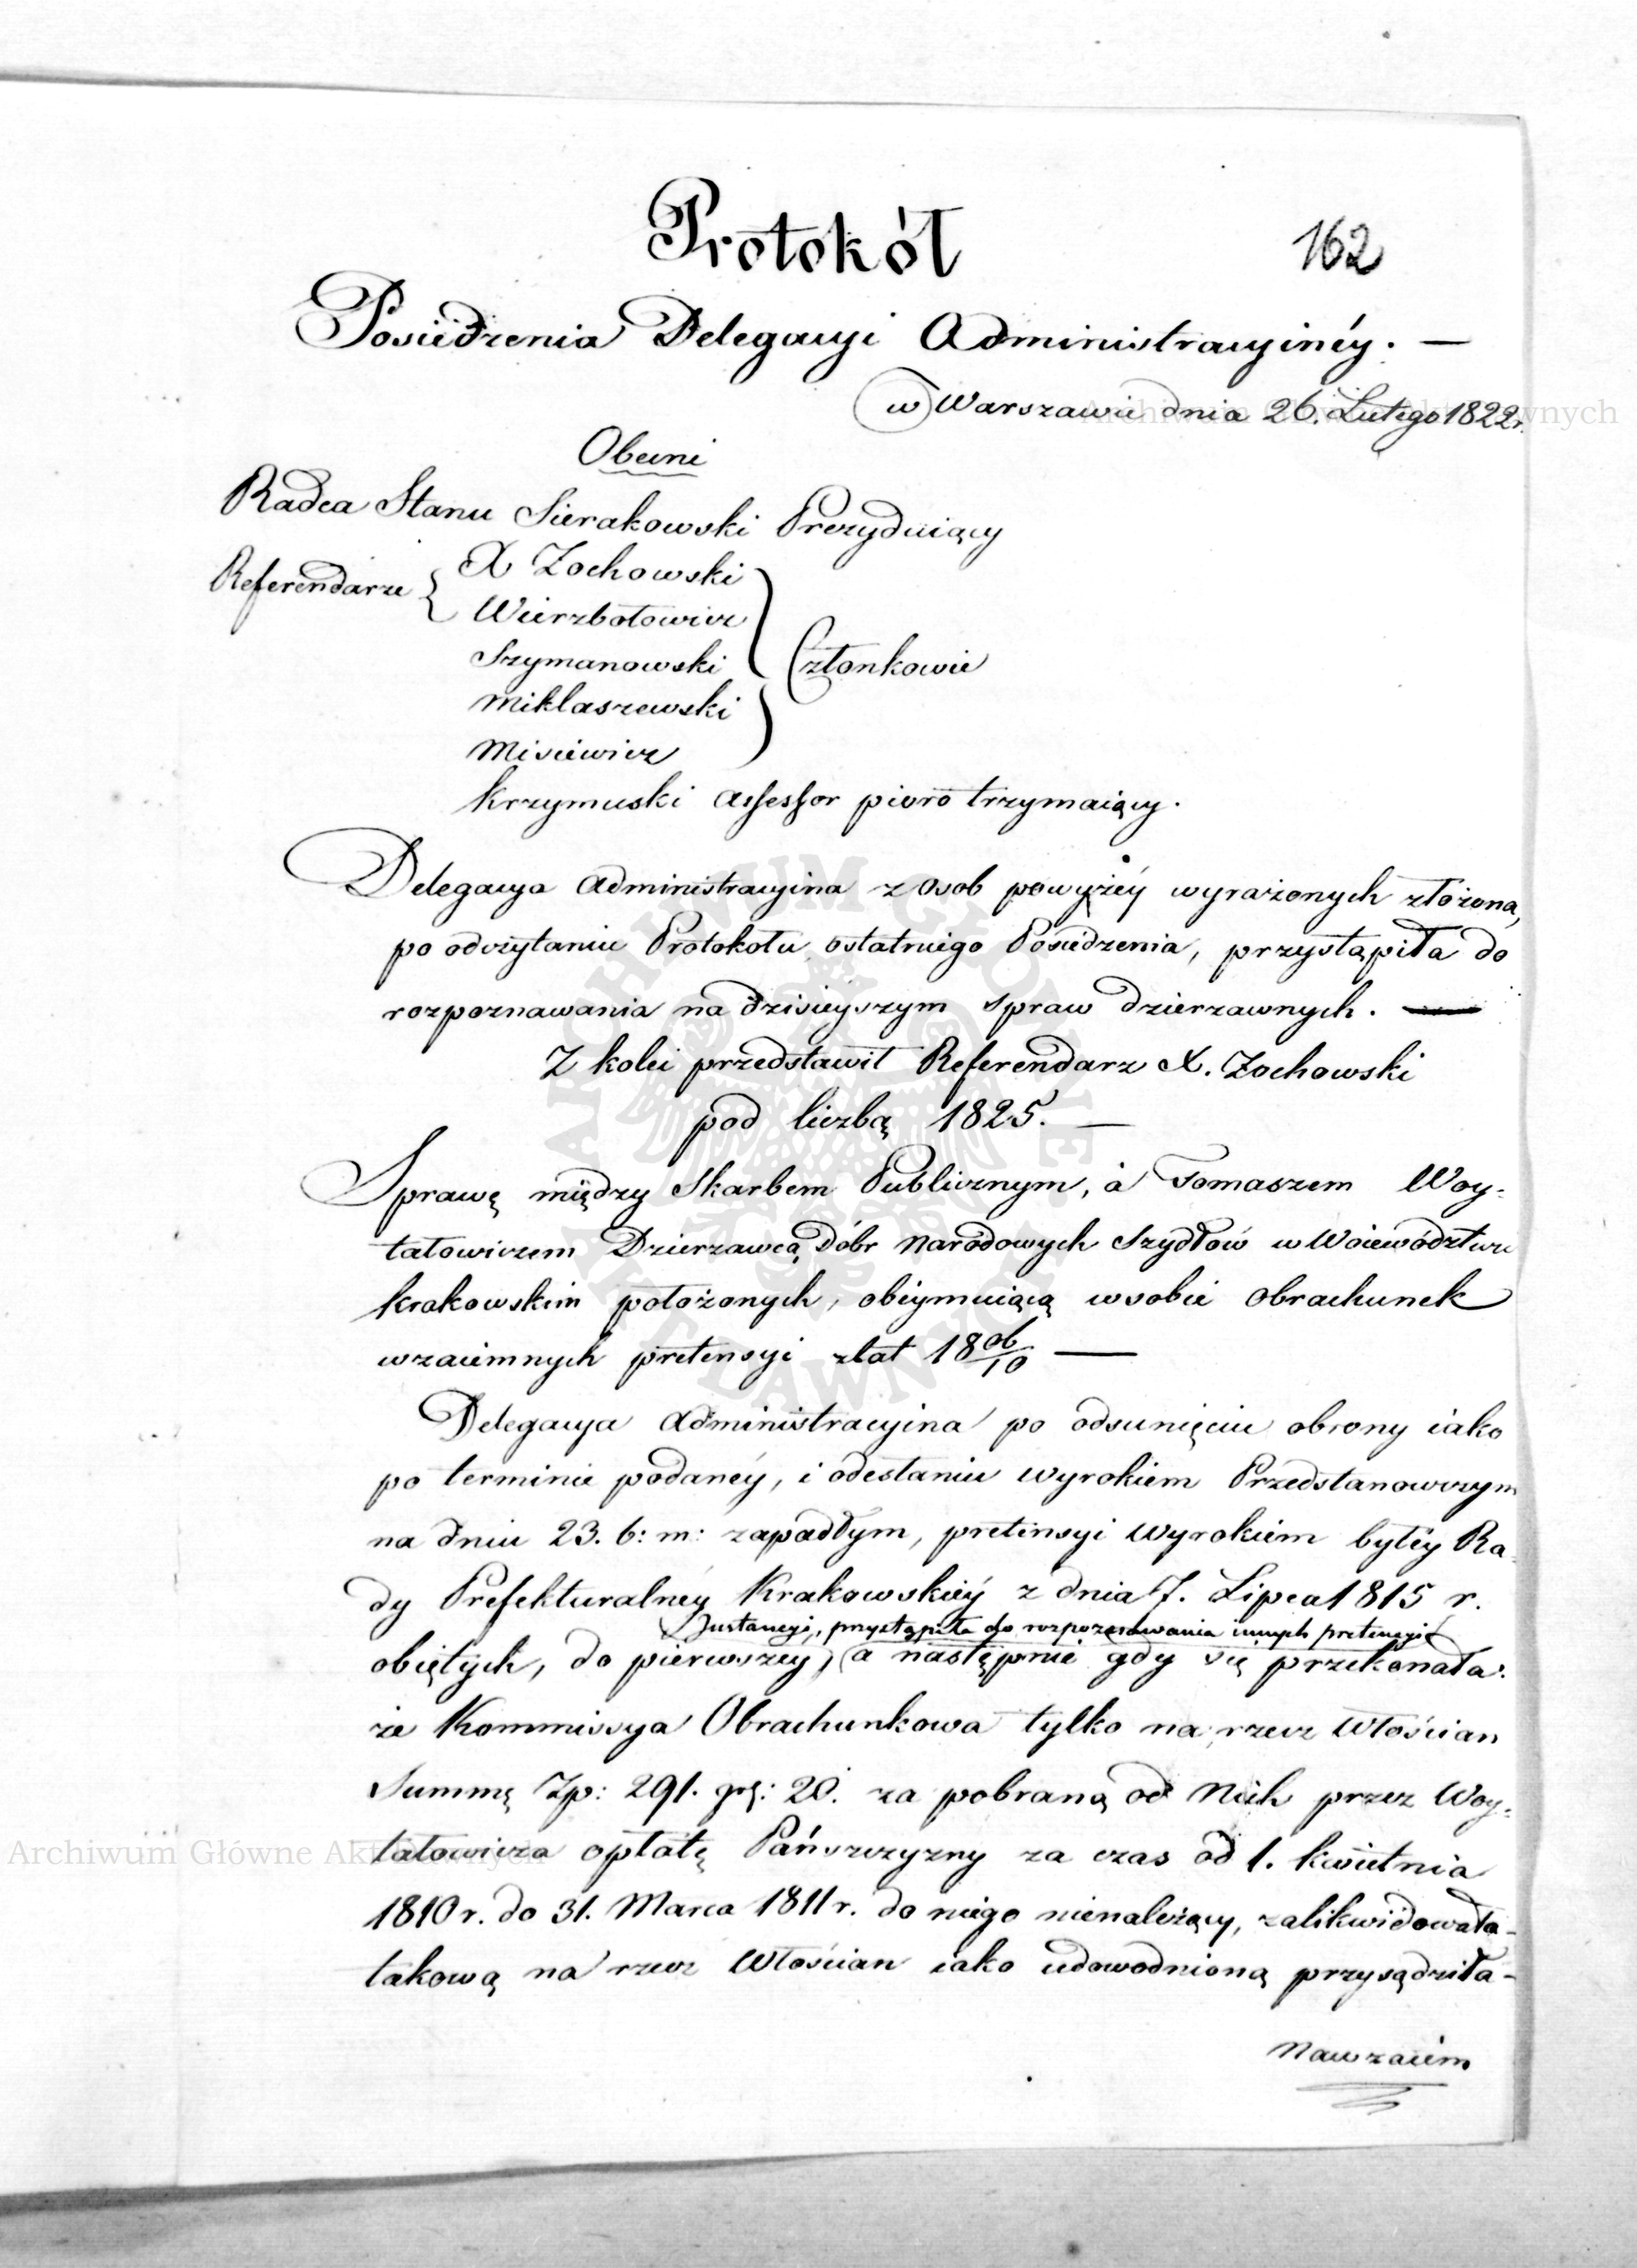 Protokół
162
Posiedzenia Delegacyi Administracyinéy. —
w Warszawie dnia 26. Lutego 1822 r.
Obecni
Radca Stanu Sierakowski Prezyduiący
Referendarze { X Zochowski
Wierzbołowicz
Szymanowski
Członkowie
Miklaszewski
Misiewicz
Krzymuski Assessor pioro trzymaiący.
Delegacya Administracyina z osob powyżéy wyrażonych złożona,
po odczytaniu Protokołu ostatniego Posiedzenia, przystąpiła do
rozpoznawania na dzisieyszym spraw dzierzawnych. —
Z kolei przedstawił Referendarz X. Zochowski
pod liczbą 1825. —
Sprawę między Skarbem Publicznym, à Tomaszem Woy-
tatowiczem Dzierzawcą Dóbr Narodowych Szydłów w Woiewództwie
Krakowskim położonych, obeymuiącą w sobie obrachunek
wzaiemnych pretensyi z lat 1806/10 —
Delegacya Administracyina po odsunięciu obrony iako
po terminie podanéy, i odesłaniu wyrokiem Przedstanowczym
na dniu 23. b: m: zapadłym, pretensyi wyrokiem byłéy Ra-
dy Prefekturalnéy Krakowskiéy z dnia 7. Lipca 1815 r.
Instancyi, przystąpiła do rozpoznawania innych pretensyi
obiętych, do pierwszey, a następnie gdy się przekonała:
że Kommissya Obrachunkowa tylko na rzecz Włościan
Summę Zp: 291. gr: 20. za pobraną od Nich przez Woy-
tatowicza opłatę Pańszczyzny za czas od 1. Kwietnia
1810 r. do 31. Marca 1811 r. do niego nienależący, zalikwidowała-
takową na rzecz Włościan iako udowodnioną przysądziła-
Nawzaiem
Archiwum Główne Akt Dawnych
Archiwum Główne Akt Dawnych
ARCHIWUM GŁÓWNE AKT DAWNYCH